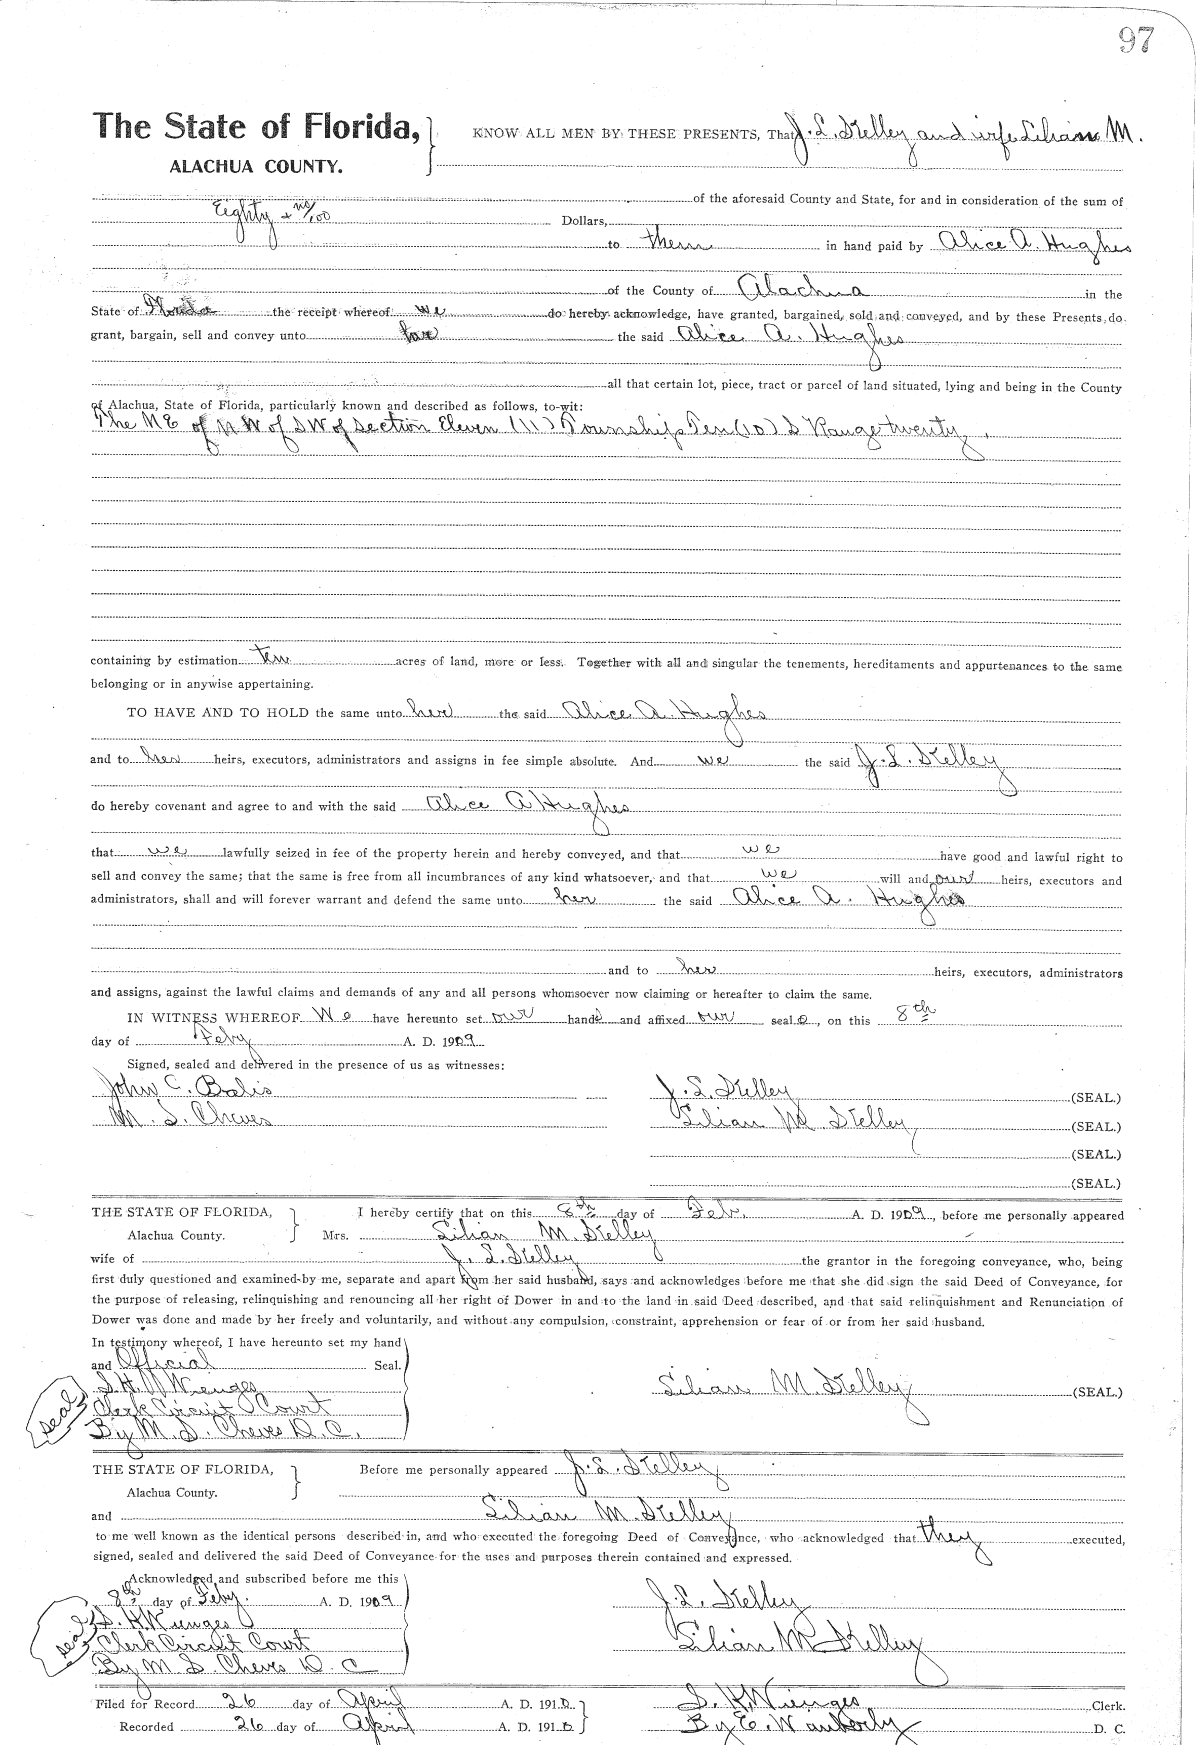 97
The State of Florida,
ALACHUA COUNTY.
KNOW ALL MEN BY THESE PRESENTS, That J. L. Kelley and wife Lilian M.
of the aforesaid County and State, for and in consideration of the sum of
Eighty + no/100 Dollars,
to them in hand paid by Alice A. Hughes
of the County of Alachua in the
State of Florida the receipt whereof we do hereby acknowledge, have granted, bargained, sold and conveyed, and by these Presents do
grant, bargain, sell and convey unto the said Alice A. Hughes
all that certain lot, piece, tract or parcel of land situated, lying and being in the County
of Alachua, State of Florida, particularly known and described as follows, to-wit:
The NE of NW of SW of Section Eleven (11) Township Ten (10) S Range twenty.
containing by estimation ten acres of land, more or less. Together with all and singular the tenements, hereditaments and appurtenances to the same
belonging or in anywise appertaining.
TO HAVE AND TO HOLD the same unto her the said Alice A Hughes
and to her heirs, executors, administrators and assigns in fee simple absolute. And we the said J. L. Kelley
do hereby covenant and agree to and with the said Alice A Hughes
that we lawfully seized in fee of the property herein and hereby conveyed, and that we have good and lawful right to
sell and convey the same; that the same is free from all incumbrances of any kind whatsoever, and that we will and our heirs, executors and
administrators, shall and will forever warrant and defend the same unto her the said Alice A. Hughes
and to her heirs, executors, administrators
and assigns, against the lawful claims and demands of any and all persons whomsoever now claiming or hereafter to claim the same.
IN WITNESS WHEREOF We have hereunto set our hands and affixed our seals, on this 8th
day of Feby A. D. 1909
Signed, sealed and delivered in the presence of us as witnesses:
John C. J. L. Kelley (SEAL.)
M. S. Cheves Lilian M Kelley (SEAL.)
(SEAL.)
(SEAL.)
THE STATE OF FLORIDA, I hereby certify that on this 8th day of Feb. A. D. 1909, before me personally appeared
Alachua County. Mrs. Lilian M. Kelley
wife of J. L. Kelley the grantor in the foregoing conveyance, who, being
first duly questioned and examined by me, separate and apart from her said husband, says and acknowledges before me that she did sign the said Deed of Conveyance, for
the purpose of releasing, relinquishing and renouncing all her right of Dower in and to the land in said Deed described, and that said relinquishment and Renunciation of
Dower was done and made by her freely and voluntarily, and without any compulsion, constraint, apprehension or fear of or from her said husband.
In testimony whereof, I have hereunto set my hand
and Official Seal.
S. H. Wienges Lilian M Kelley (SEAL.)
seal Clerk Circuit Court
By M. S. Cheves D. C.
THE STATE OF FLORIDA, Before me personally appeared J. L. Kelley
Alachua County.
and Lilian M Kelley
to me well known as the identical persons described in, and who executed the foregoing Deed of Conveyance, who acknowledged that they executed,
signed, sealed and delivered the said Deed of Conveyance for the uses and purposes therein contained and expressed.
Acknowledged and subscribed before me this
8th day of Feby. A. D. 1909 J. L. Kelley
seal S. H. Wienges
Clerk Circuit Court Lilian M Kelley
By M S Cheves D. C
Filed for Record 26 day of April A. D. 1910 S. H. Wienges Clerk.
Recorded 26 day of April A. D. 1910 By E. D. C.